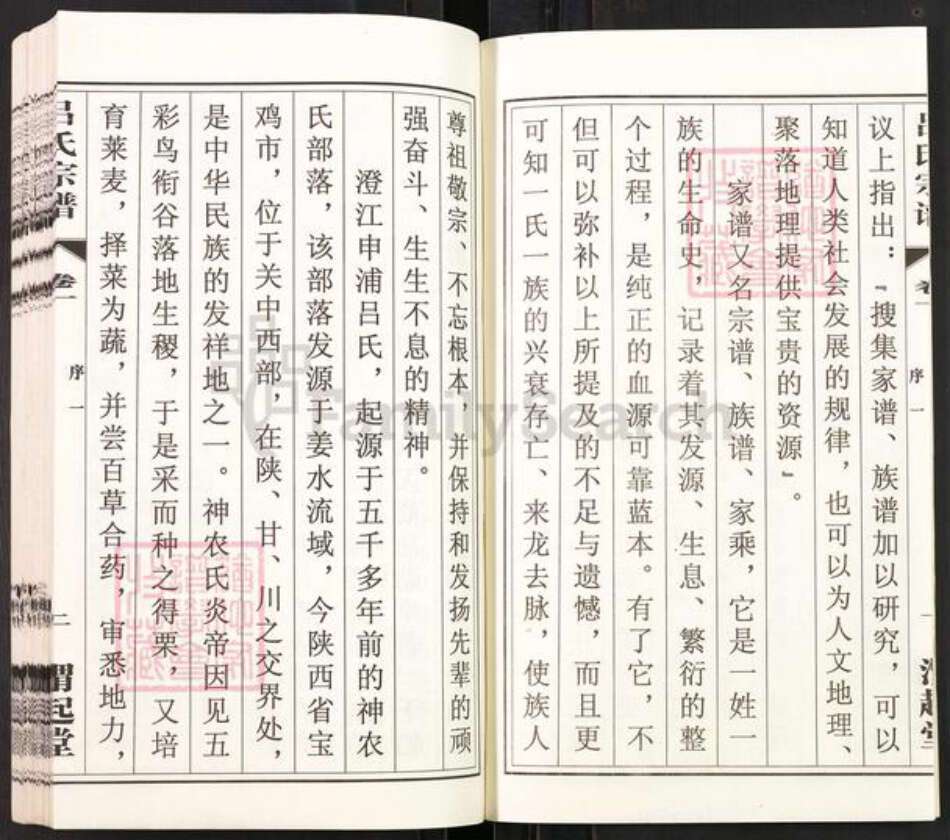 吕氏宗谱 卷一 序一
议上指出：『搜集家谱、族谱加以研究，可以
知道人类社会发展的规律，也可以为人文地理、
聚落地理提供宝贵的资源』。
家谱又名宗谱、族谱、家乘，它是一姓一
族的生命史，记录着其发源、生息、繁衍的整
个过程，是纯正的血源可靠蓝本。有了它，不
但可以弥补以上所提及的不足与遗憾，而且更
可知一氏一族的兴衰存亡、来龙去脉，使族人
尊祖敬宗、不忘根本，并保持和发扬先辈的顽
强奋斗、生生不息的精神。
澄江申浦吕氏，起源于五千多年前的神农
氏部落，该部落发源于姜水流域，今陕西省宝
鸡市，位于关中西部，在陕、甘、川之交界处，
是中华民族的发祥地之一。神农氏炎帝因见五
彩鸟衔谷落地生稷，于是采而种之得栗，又培
育莱麦，择菜为蔬，并尝百草合药，审悉地力，
吕氏宗谱 卷一 序一 二 渭起堂
FamilySearch